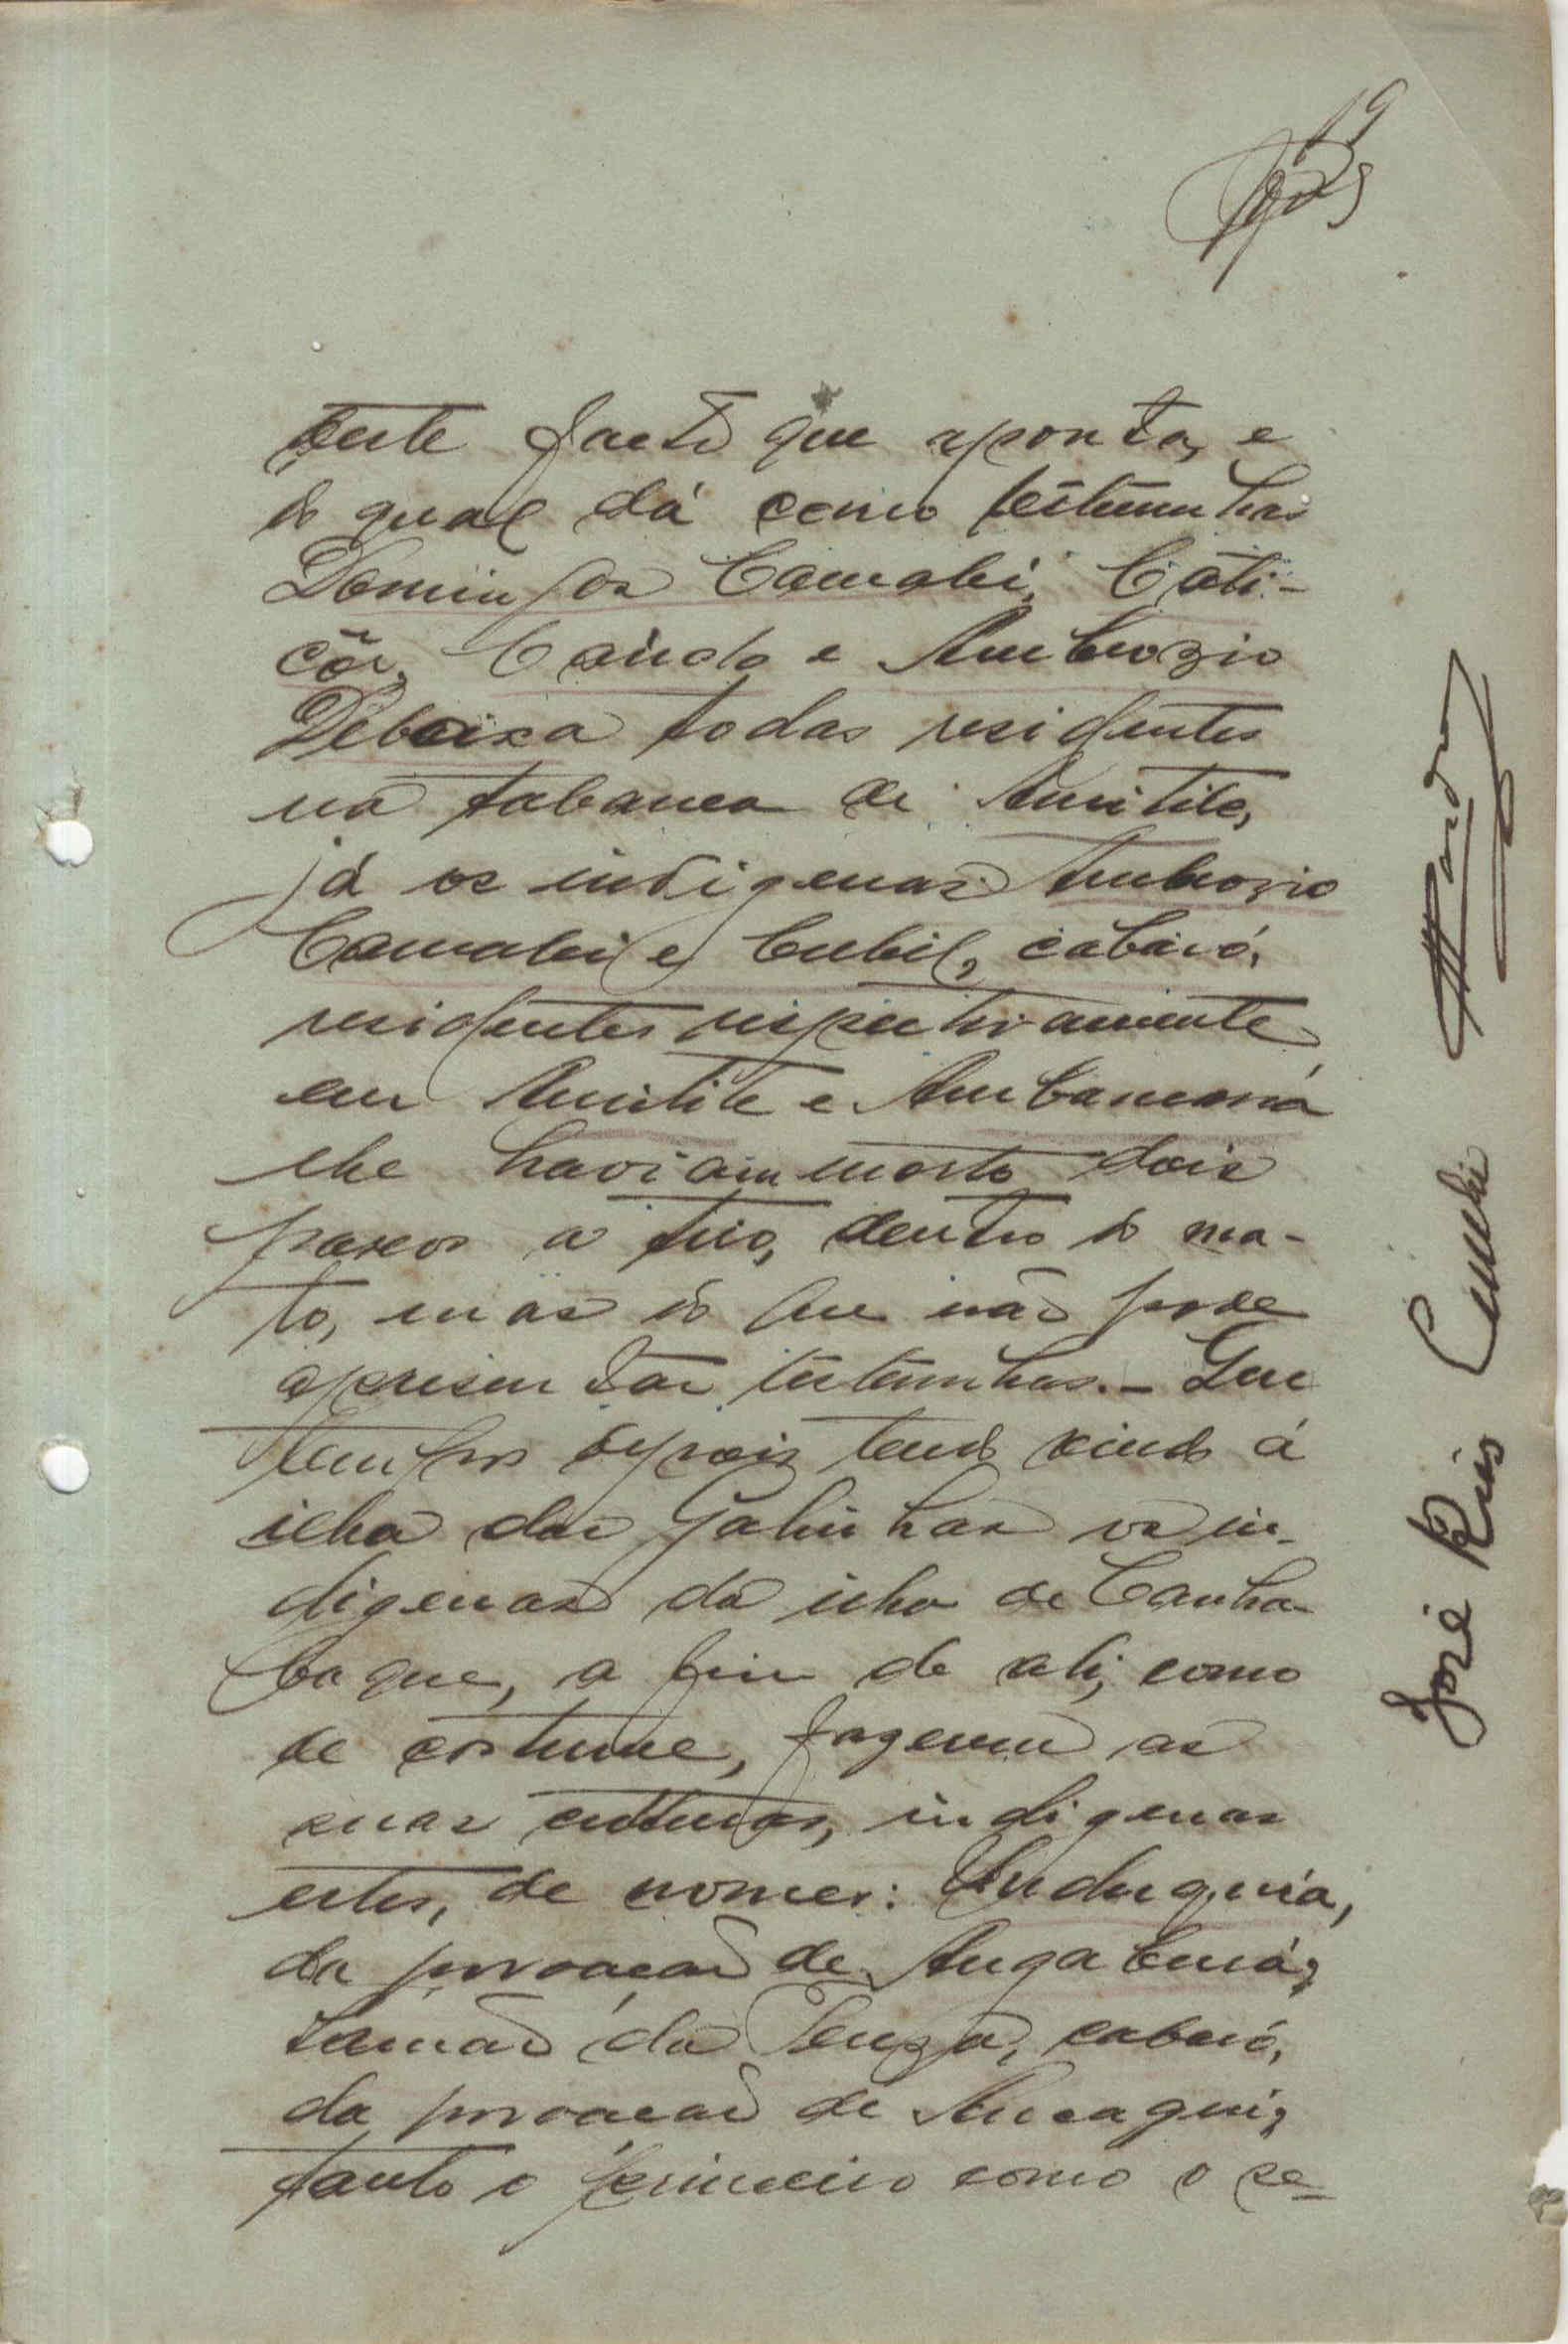 19
deste facto que aponta, e
do qual dá como testemunhas
Domingos Camabi, Cati-
côr, Caúdo e Ambrozio
Debaixa todas residentes
na tabanca de Amitite,
já os indigenas Ambrozio
Camabi e Cubil, cabaró,
residentes respectivamente
em Amitite e Ambancaná
lhe haviam morto dois
porcos a tiro, dentro do ma-
to, mas do que não pode
apresentar testemunhas.- Que
tempos depois tendo vindo á
ilha das Galinhas os in-
digenas da ilha de Canha-
baque, a fim de ali, como
de costume, fazerem as
suas culturas, indigenas
estes, de nomes:
da povoação de
da cabaró,
da povoação de
tanto o primeiro como o se-
José Rius